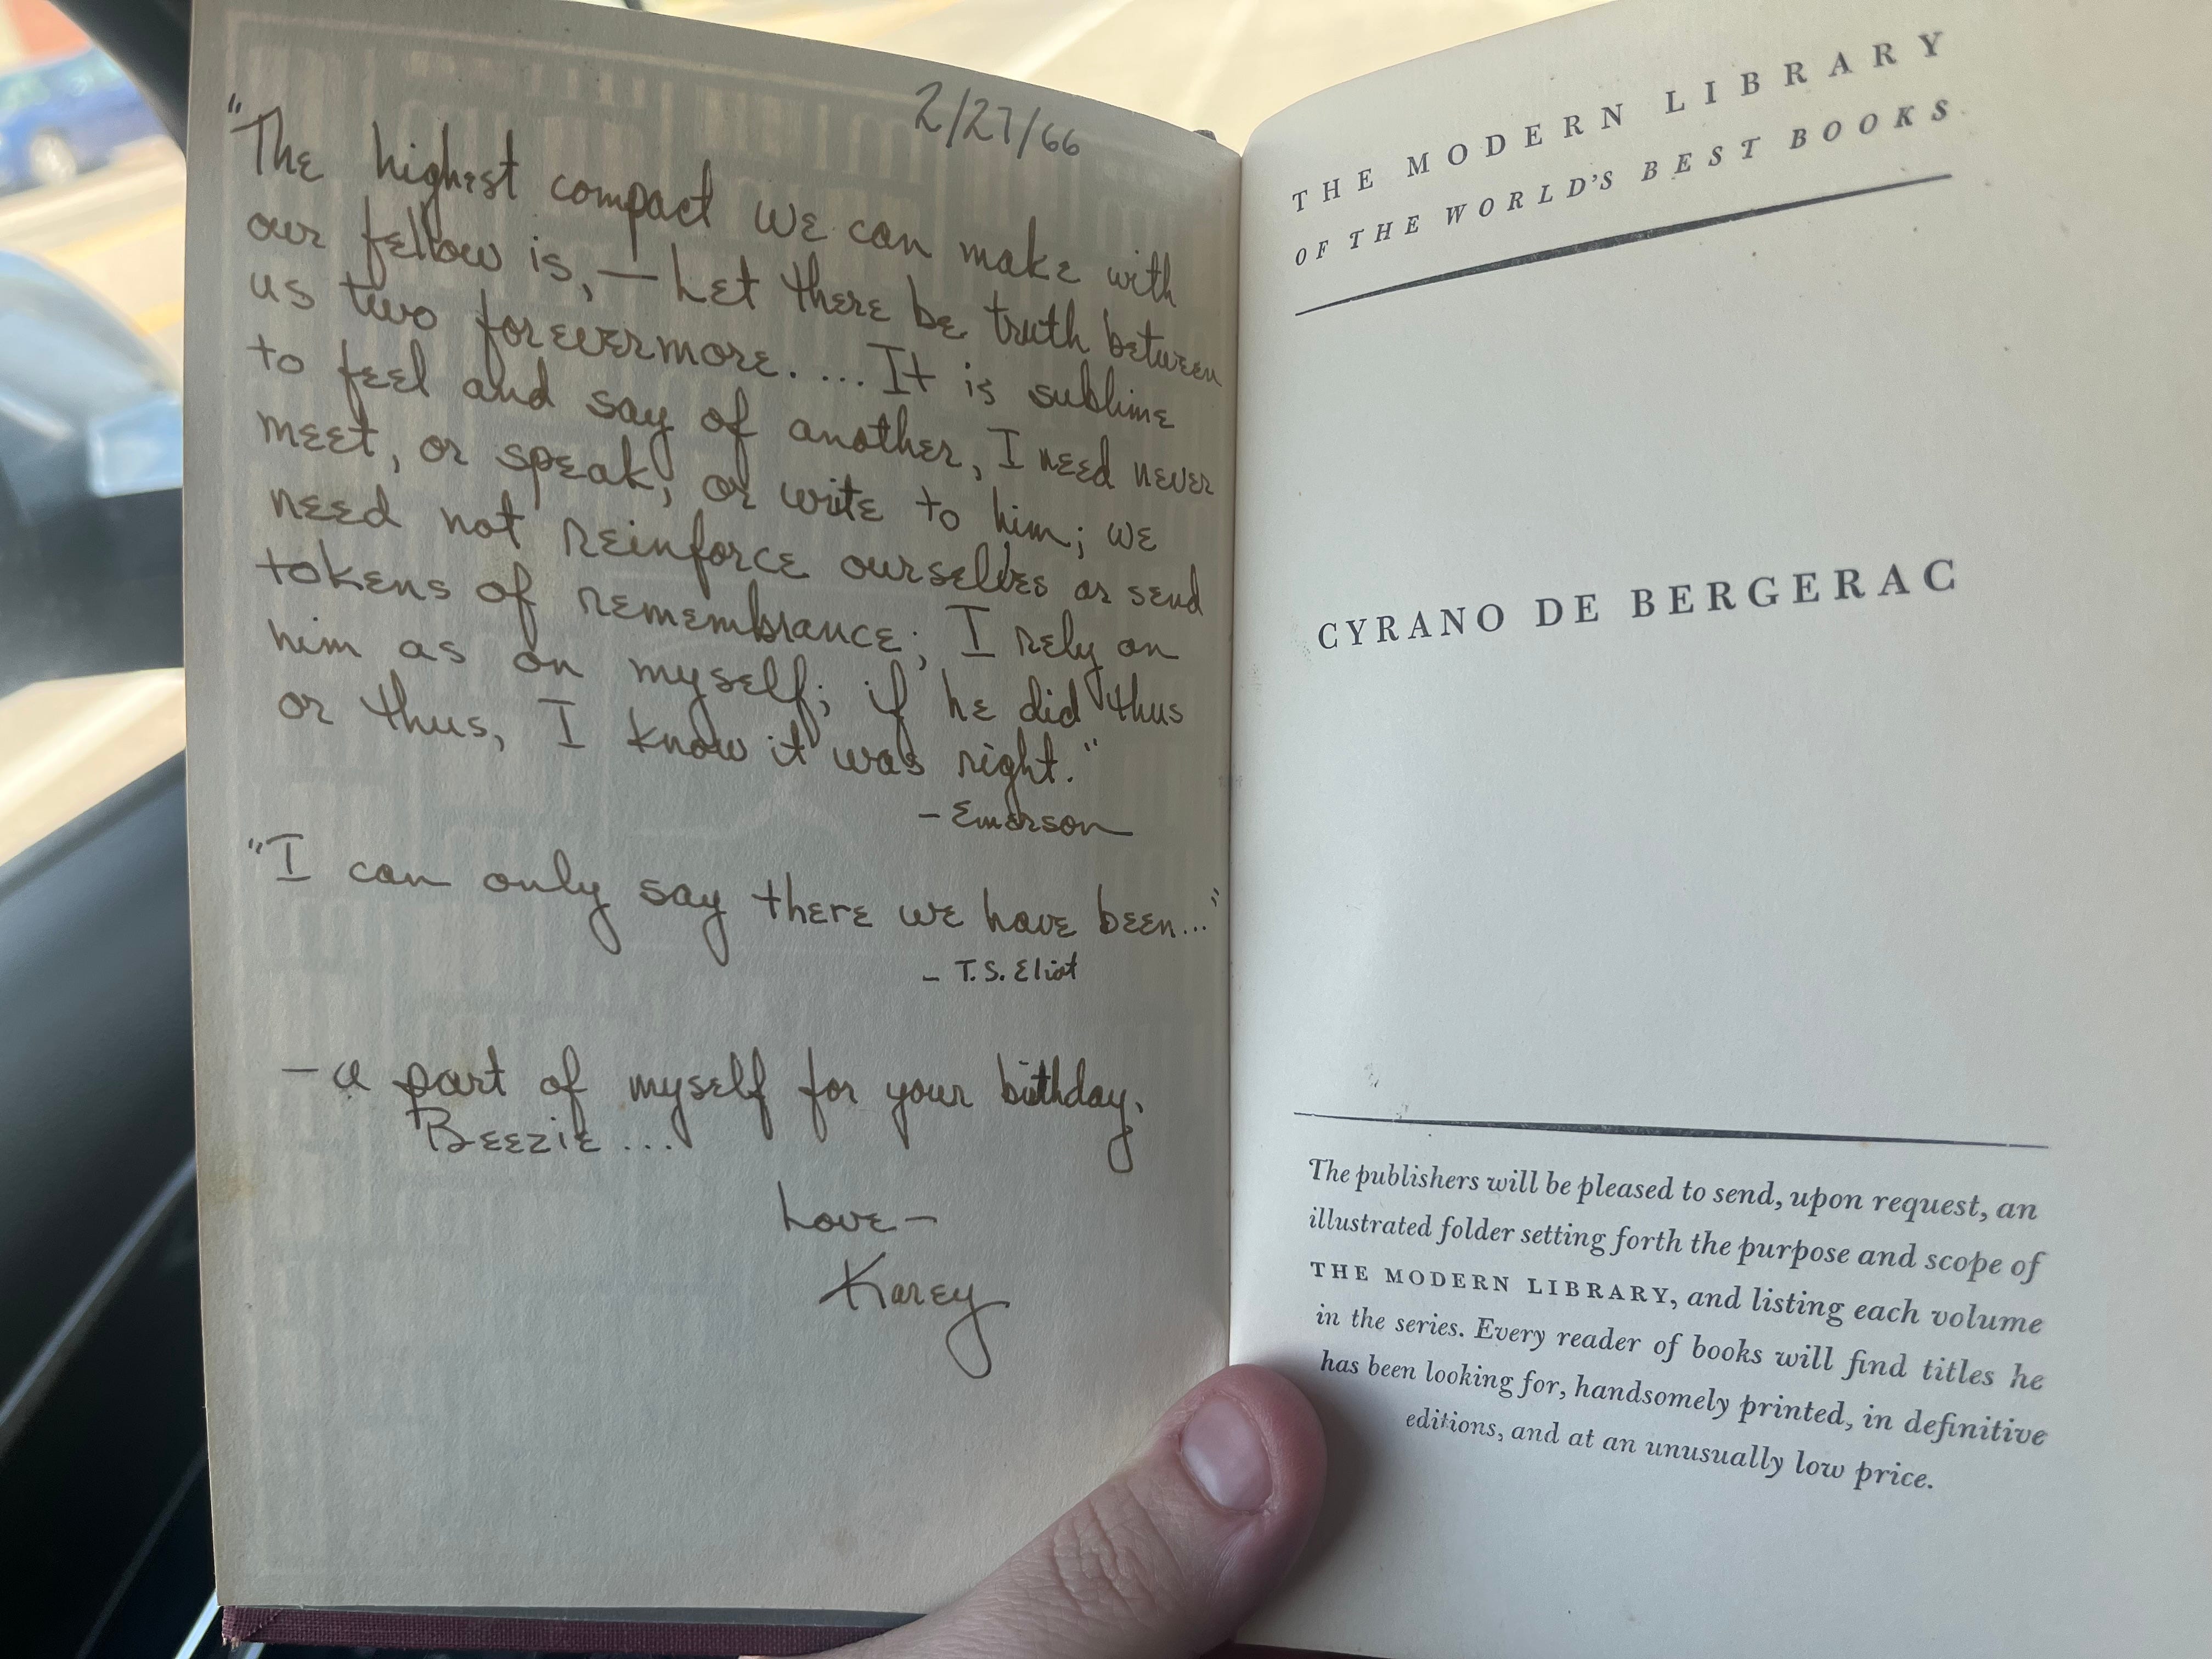 2/27/66
"The highest compact we can make with
our fellow is, — Let there be truth between
us two forevermore. ... It is sublime
to feel and say of another, I need never
meet, or speak, or write to him; we
need not reinforce ourselves or send
tokens of remembrance; I rely on
him as on myself; if he did thus
or thus, I know it was right."
- Emerson
"I can only say there we have been..."
- T.S. Eliot
- a part of myself for your birthday,
Beezie ...
Love -
Karey
THE MODERN LIBRARY
OF THE WORLD'S BEST BOOKS
CYRANO DE BERGERAC
The publishers will be pleased to send, upon request, an
illustrated folder setting forth the purpose and scope of
THE MODERN LIBRARY, and listing each volume
in the series. Every reader of books will find titles he
has been looking for, handsomely printed, in definitive
editions, and at an unusually low price.